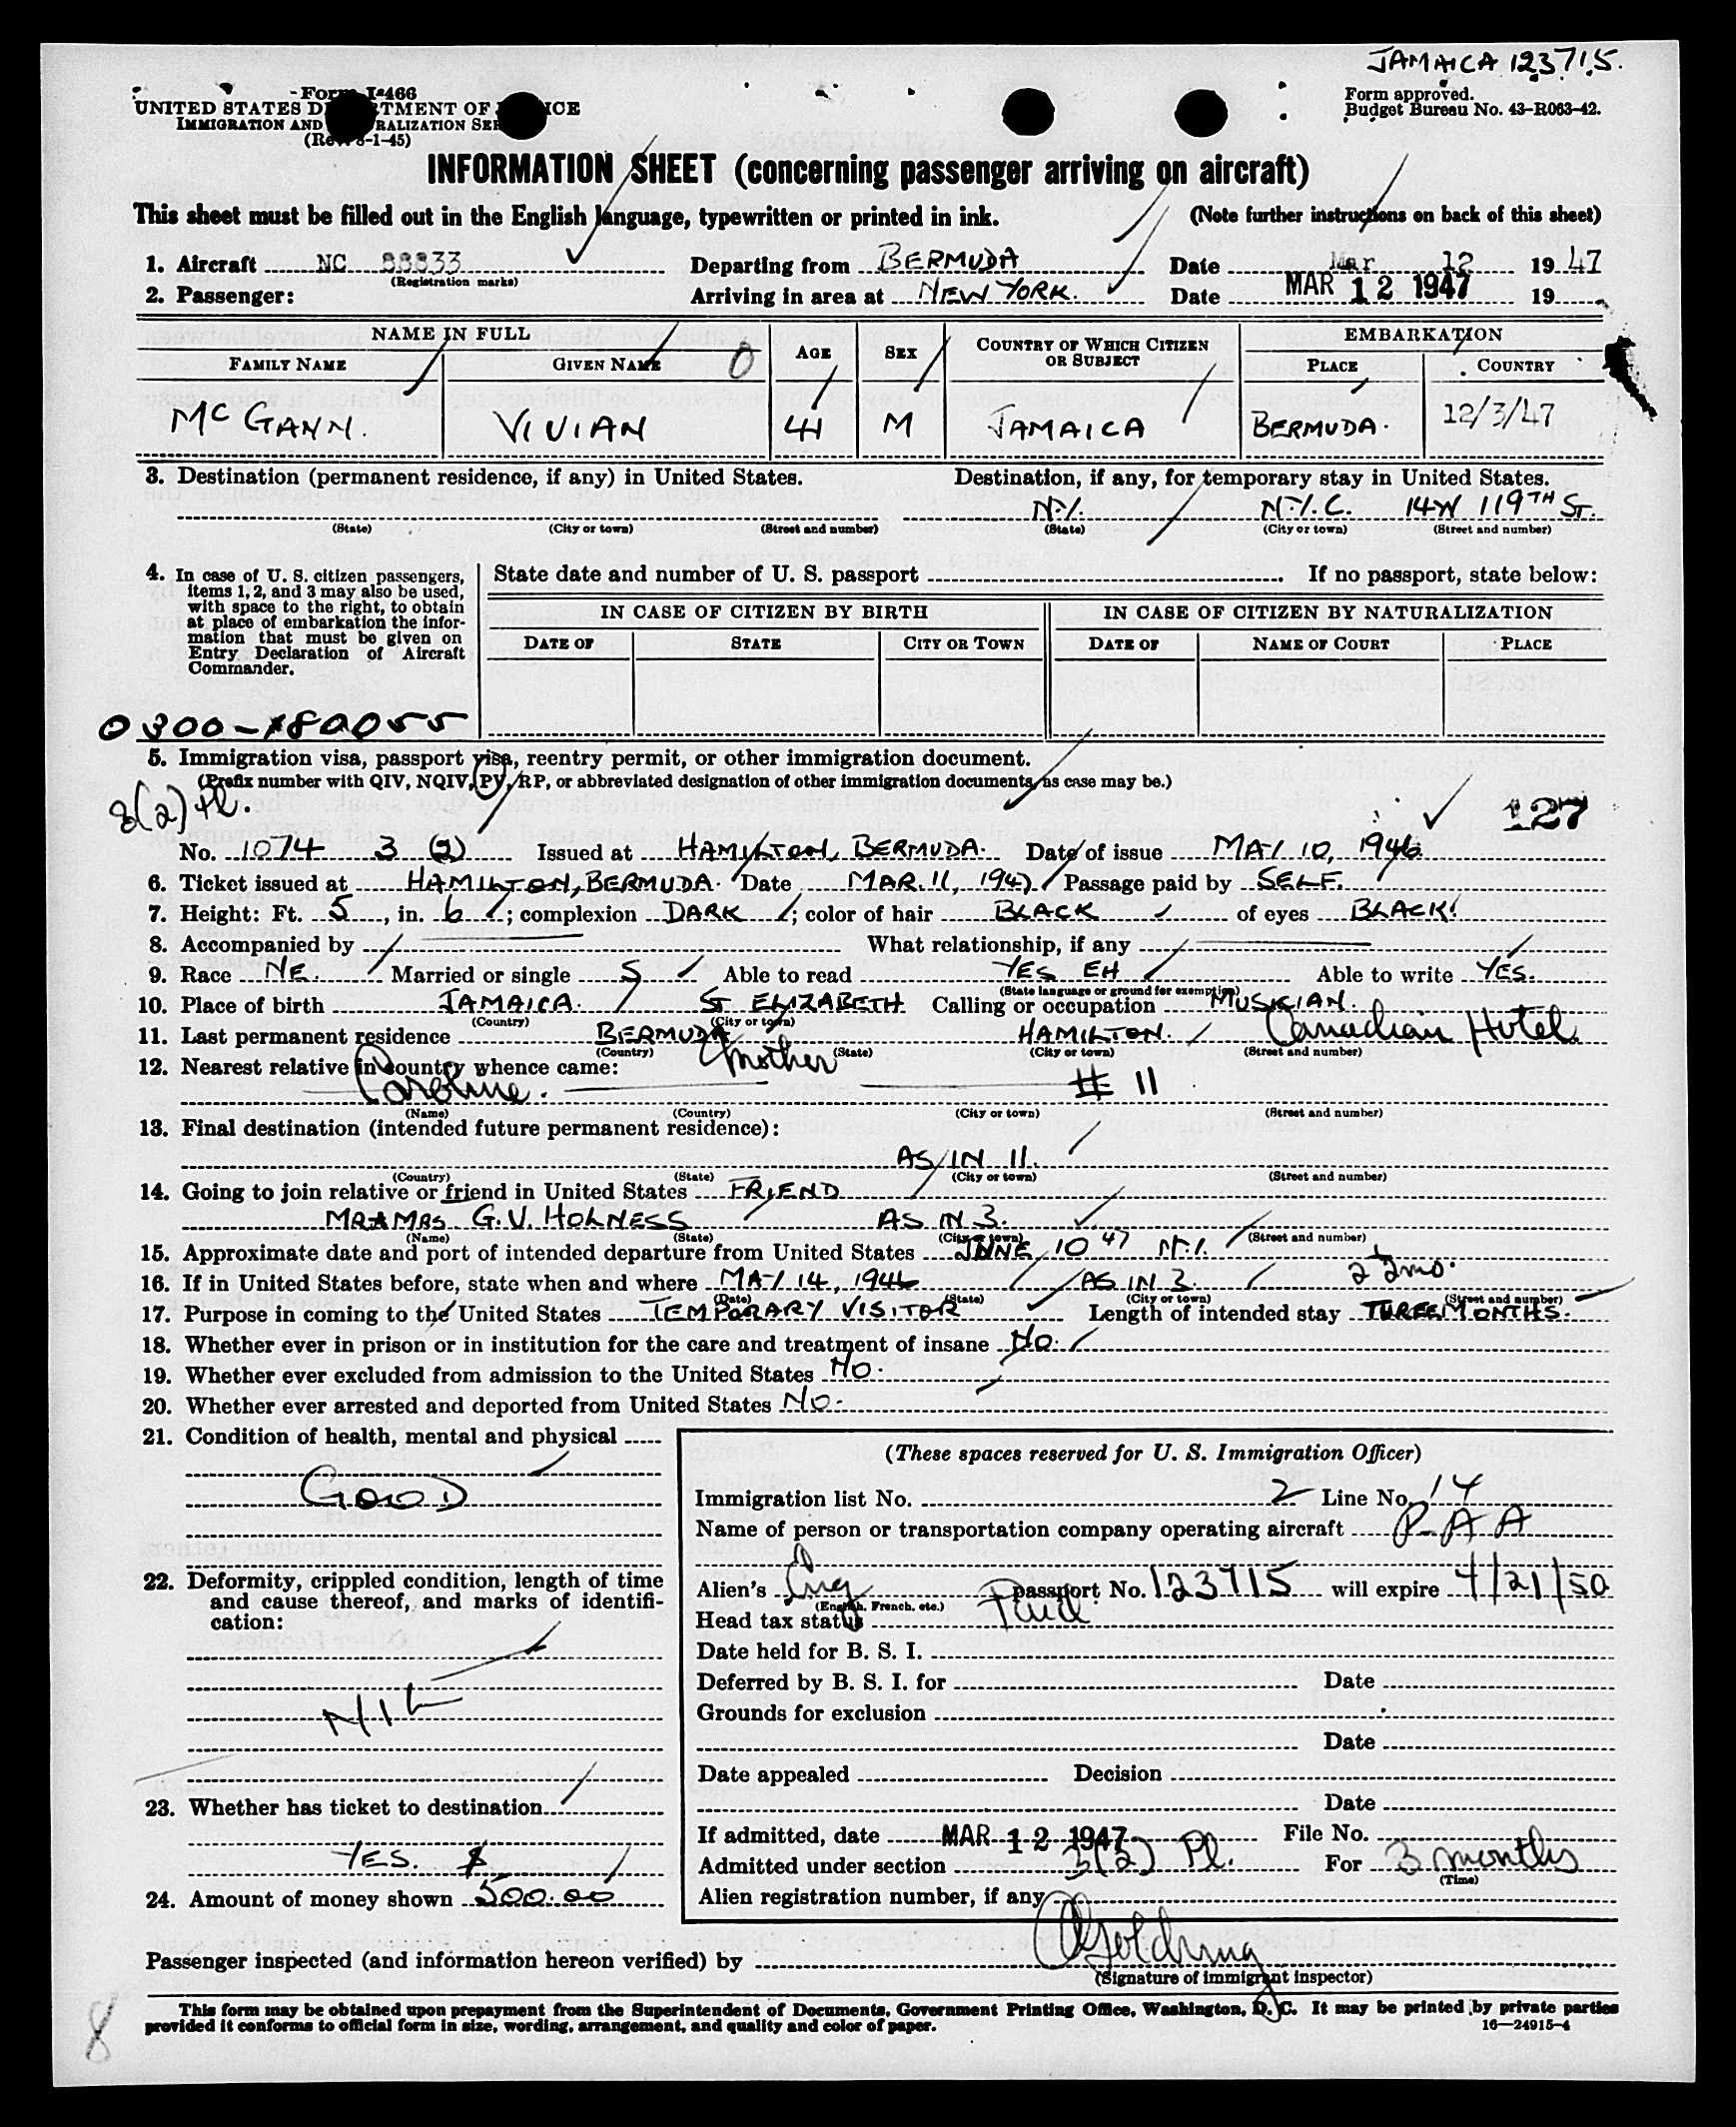 JAMAICA 123715.
Form I-466
UNITED STATES DEPARTMENT OF JUSTICE
IMMIGRATION AND NATURALIZATION SERVICE
(Rev. 8-1-45)
Form approved.
Budget Bureau No. 43-R063-42.
INFORMATION SHEET (concerning passenger arriving on aircraft)
This sheet must be filled out in the English language, typewritten or printed in ink. (Note further instructions on back of this sheet)
1. Aircraft NC 88833 Departing from BERMUDA Date Mar 12 1947
(Registration marks)
2. Passenger: Arriving in area at NEW YORK. Date MAR 12 1947 19
NAME IN FULL AGE SEX COUNTRY OF WHICH CITIZEN OR SUBJECT EMBARKATION
FAMILY NAME GIVEN NAME 0 PLACE COUNTRY
MC GANN. VIVIAN 41 M JAMAICA BERMUDA. 12/3/47
3. Destination (permanent residence, if any) in United States. Destination, if any, for temporary stay in United States.
N.Y. N.Y.C. 14W 119TH ST.
(State) (City or town) (Street and number) (State) (City or town) (Street and number)
4. In case of U. S. citizen passengers, items 1, 2, and 3 may also be used, with space to the right, to obtain at place of embarkation the information that must be given on Entry Declaration of Aircraft Commander.
State date and number of U. S. passport If no passport, state below:
IN CASE OF CITIZEN BY BIRTH IN CASE OF CITIZEN BY NATURALIZATION
DATE OF STATE CITY OR TOWN DATE OF NAME OF COURT PLACE
0300-180055
5. Immigration visa, passport visa, reentry permit, or other immigration document.
(Prefix number with QIV, NQIV, PV, RP, or abbreviated designation of other immigration documents, as case may be.)
3(2) Pl.
127
No. 1074 3 (2) Issued at HAMILTON, BERMUDA. Date of issue MAY 10, 1946
6. Ticket issued at HAMILTON, BERMUDA. Date MAR. 11, 1947 Passage paid by SELF.
7. Height: Ft. 5, in. 6; complexion DARK; color of hair BLACK of eyes BLACK
8. Accompanied by What relationship, if any
9. Race NE. Married or single S Able to read YES EH Able to write YES.
(State language or ground for exemption)
10. Place of birth JAMAICA. ST ELIZABETH Calling or occupation MUSICIAN.
(Country) (City or town)
11. Last permanent residence BERMUDA HAMILTON. Canadian Hotel
(Country) (State) (City or town) (Street and number)
12. Nearest relative in country whence came: Mother
Caroline. # 11
(Name) (Country) (City or town) (Street and number)
13. Final destination (intended future permanent residence):
AS IN 11.
(Country) (State) (City or town) (Street and number)
14. Going to join relative or friend in United States FRIEND
MR & MRS G.V. HOLNESS AS IN 3.
(Name) (State) (City or town) (Street and number)
15. Approximate date and port of intended departure from United States JUNE 10 47 N.Y.
16. If in United States before, state when and where MAY 14, 1946 AS IN 3. 2 2mo.
(Date) (State) (City or town) (Street and number)
17. Purpose in coming to the United States TEMPORARY VISITOR Length of intended stay THREE MONTHS.
18. Whether ever in prison or in institution for the care and treatment of insane NO.
19. Whether ever excluded from admission to the United States NO.
20. Whether ever arrested and deported from United States NO.
21. Condition of health, mental and physical
GOOD
22. Deformity, crippled condition, length of time and cause thereof, and marks of identification:
NIL
23. Whether has ticket to destination
YES. $
24. Amount of money shown 500.00
(These spaces reserved for U. S. Immigration Officer)
Immigration list No. 2 Line No. 14
Name of person or transportation company operating aircraft P A A
Alien's Eng passport No. 123715 will expire 4/21/50
(English, French, etc.)
Head tax status Paid
Date held for B. S. I.
Deferred by B. S. I. for Date
Grounds for exclusion
Date
Date appealed Decision
Date
If admitted, date MAR 12 1947 File No.
Admitted under section 3(2) Pl. For 3 months
(Time)
Alien registration number, if any
Passenger inspected (and information hereon verified) by
(Signature of immigrant inspector)
This form may be obtained upon prepayment from the Superintendent of Documents, Government Printing Office, Washington, D. C. It may be printed by private parties
provided it conforms to official form in size, wording, arrangement, and quality and color of paper.
16—24915-4
8